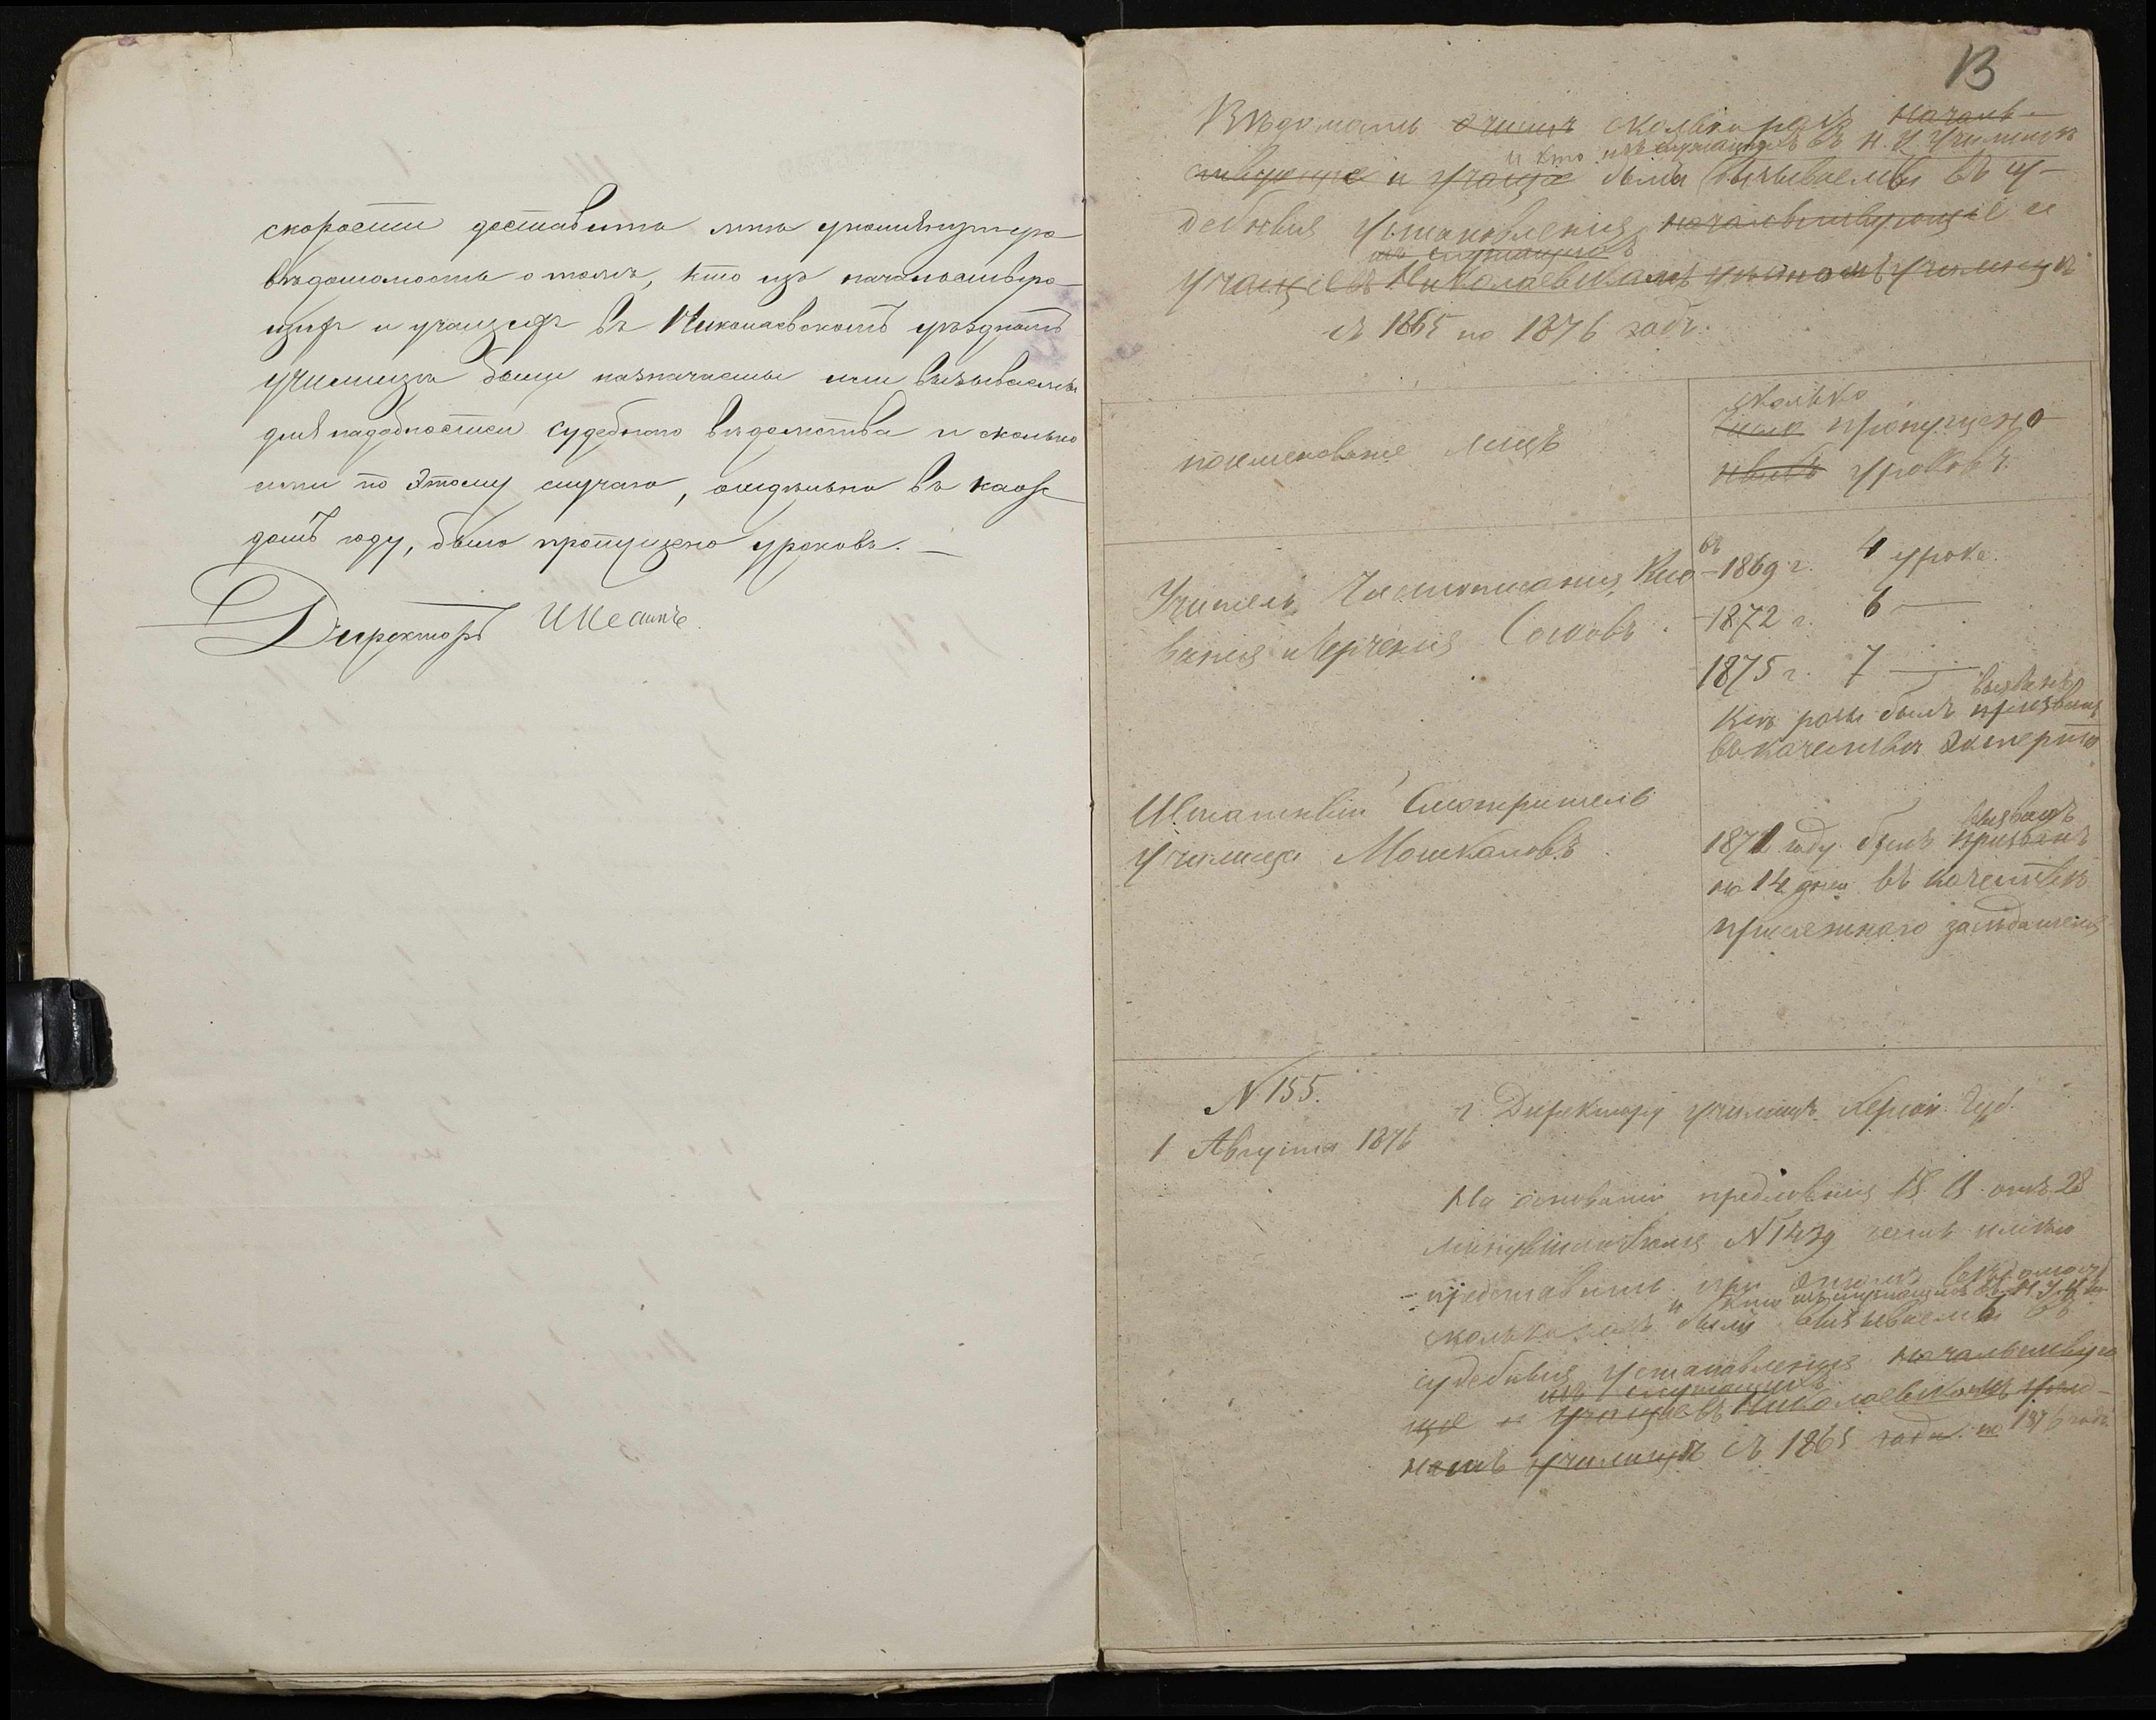 скорости доставить мнѣ
вѣдомость о томъ, кто изъ начальствую-
щихъ и учащихъ въ Николаевскомъ уѣздномъ
училищѣ были назначаемы или вызываемы
для надобностей судебнаго вѣдомства и сколько
ими по этому случаю, отдѣльно въ каж-
домъ году, было пропущено уроковъ. —
Директоръ
13
Вѣдомость о числѣ сколько разъ началь-
и кто изъ служащихъ въ Н. У. Училищѣ
ствующіе и учащіе были вызываемы въ су-
дебныя установленія начальствующіе и
изъ служащихъ
учащіе въ Николаевскомъ уѣздномъ училищѣ
съ 1865 по 1876 годъ.
поименованіе лицъ
сколько
Число пропущено
уроковъ.
Учитель Чистописанія, Рисо-
ванія и Черченія
въ 1869 г. 4 урока.
1872 г. 6 —
1875 г. 7 —
вызванъ
разы былъ призванъ
въ качествѣ эксперта
Штатный Смотритель
училища Мошкаловъ
вызванъ
1871 году былъ призванъ
на 14 дней въ качествѣ
присяжнаго засѣдателя
N 155.
1 Августа 1876
г. Директору училищъ Херсон. Губ.
На основаніи предложенія В. В. отъ 28
минувшаго Іюля N 1439 честь имѣю
представить при этомъ вѣдомость
и кто изъ служащихъ въ Н. У. У.
сколько разъ были вызываемы въ
судебныя установленія начальствую-
изъ служащихъ
щіе и учащіе въ Николаевскомъ уѣзд-
номъ училищѣ съ 1865 года по 1876 годъ.